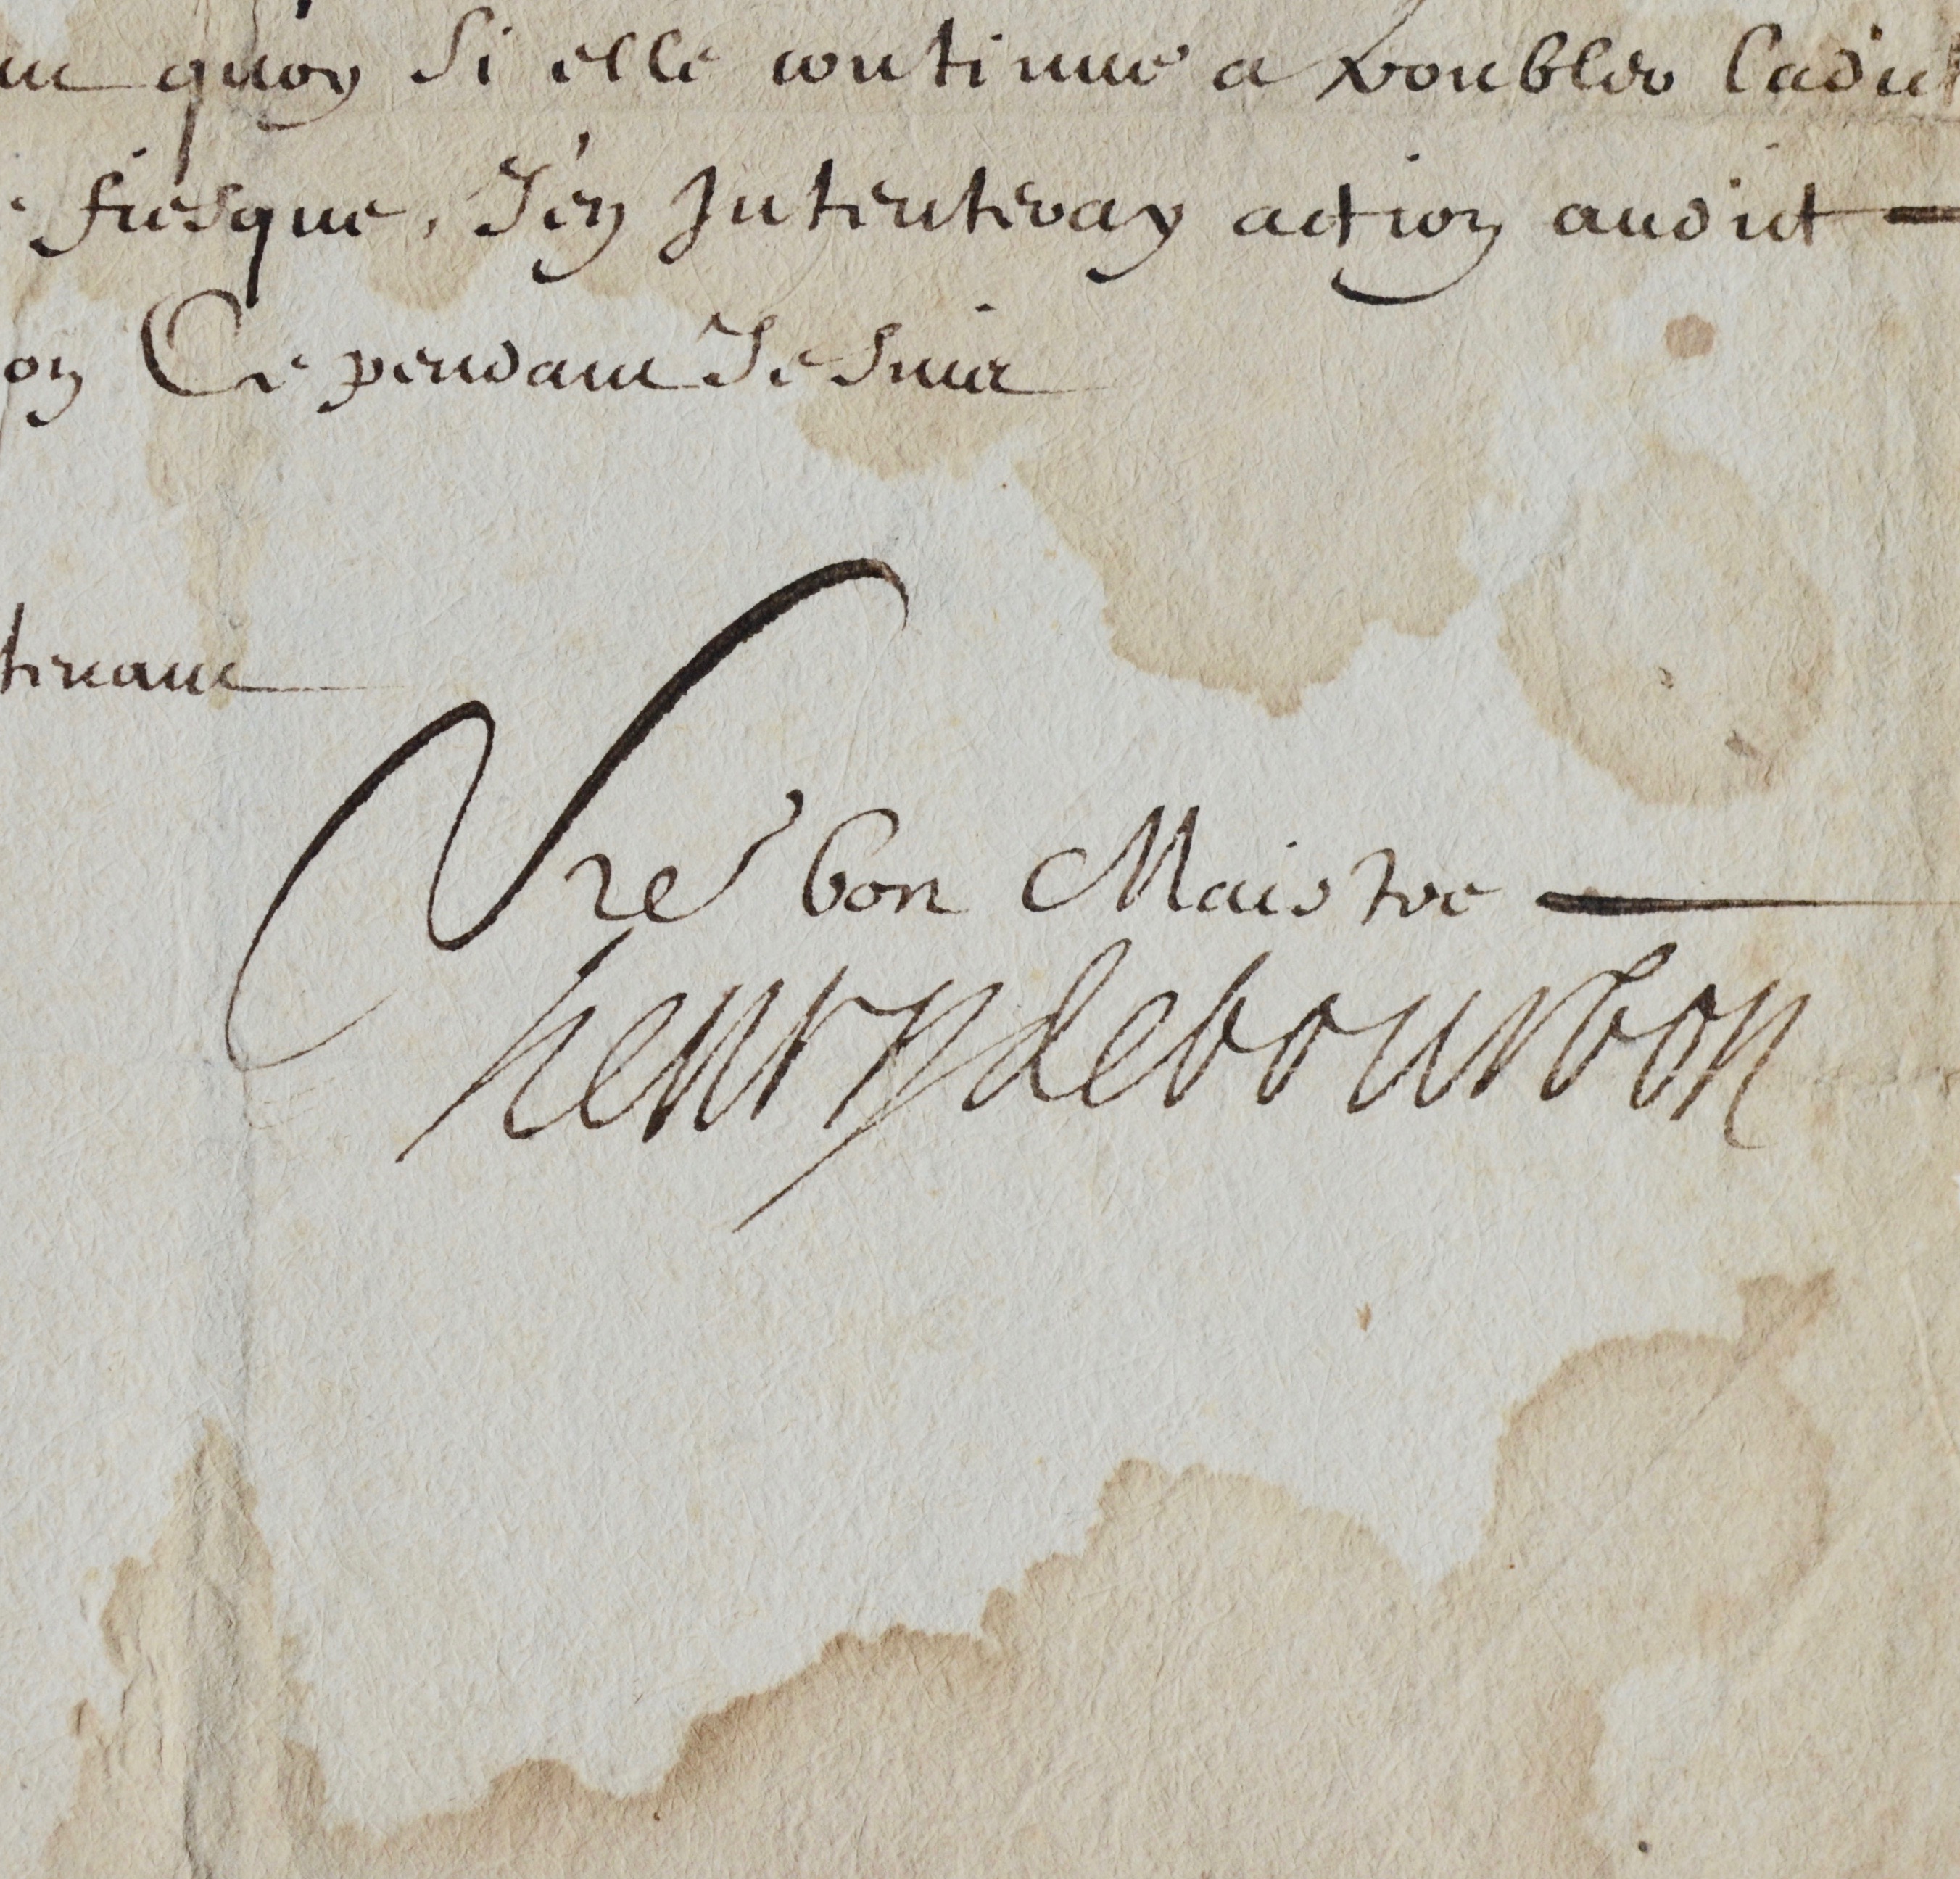 quoy si elle continue a troubler ladict
fiesque, J'en Intenteray action audict
on Ce pendant Je suis
tenant
Vre bon Maistre
henrydebourbon